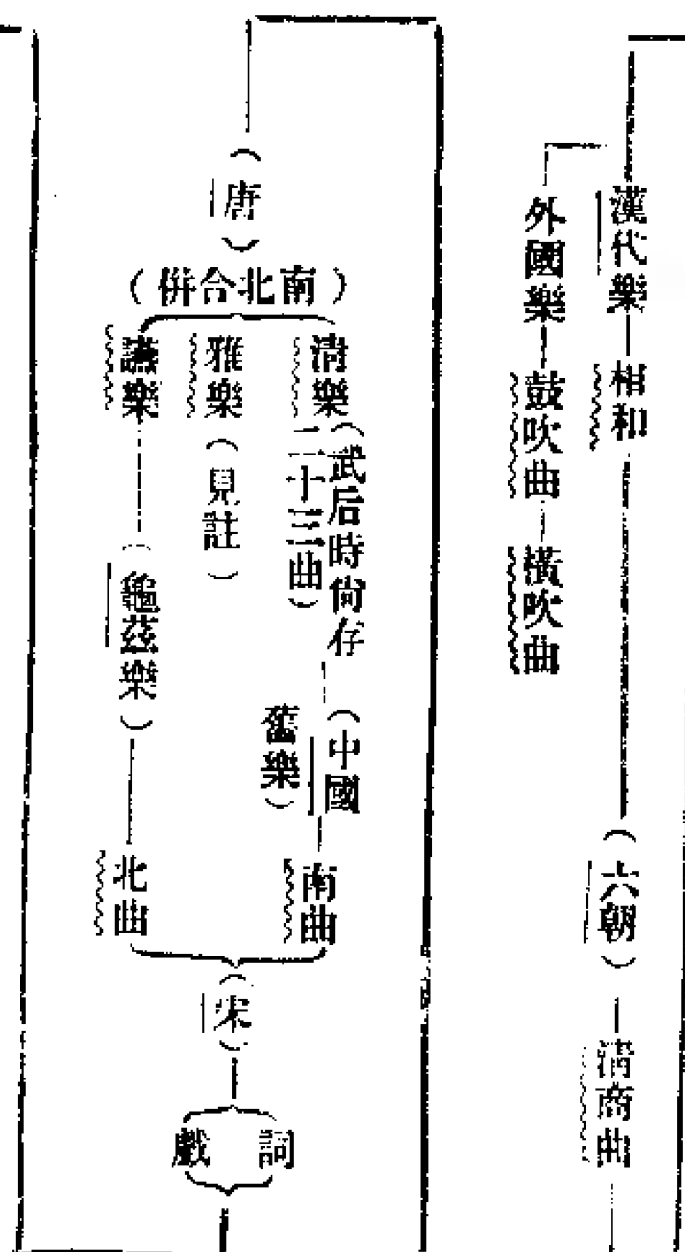 漢代樂
相和
(六朝)
清商曲
外國樂
鼓吹曲
橫吹曲
(唐)
(南北合併)
清樂
(武后時尙存
二十三曲)
(中國
舊樂)
南曲
雅樂
(見註)
讌樂
(龜茲樂)
北曲
(宋)
詞
戲